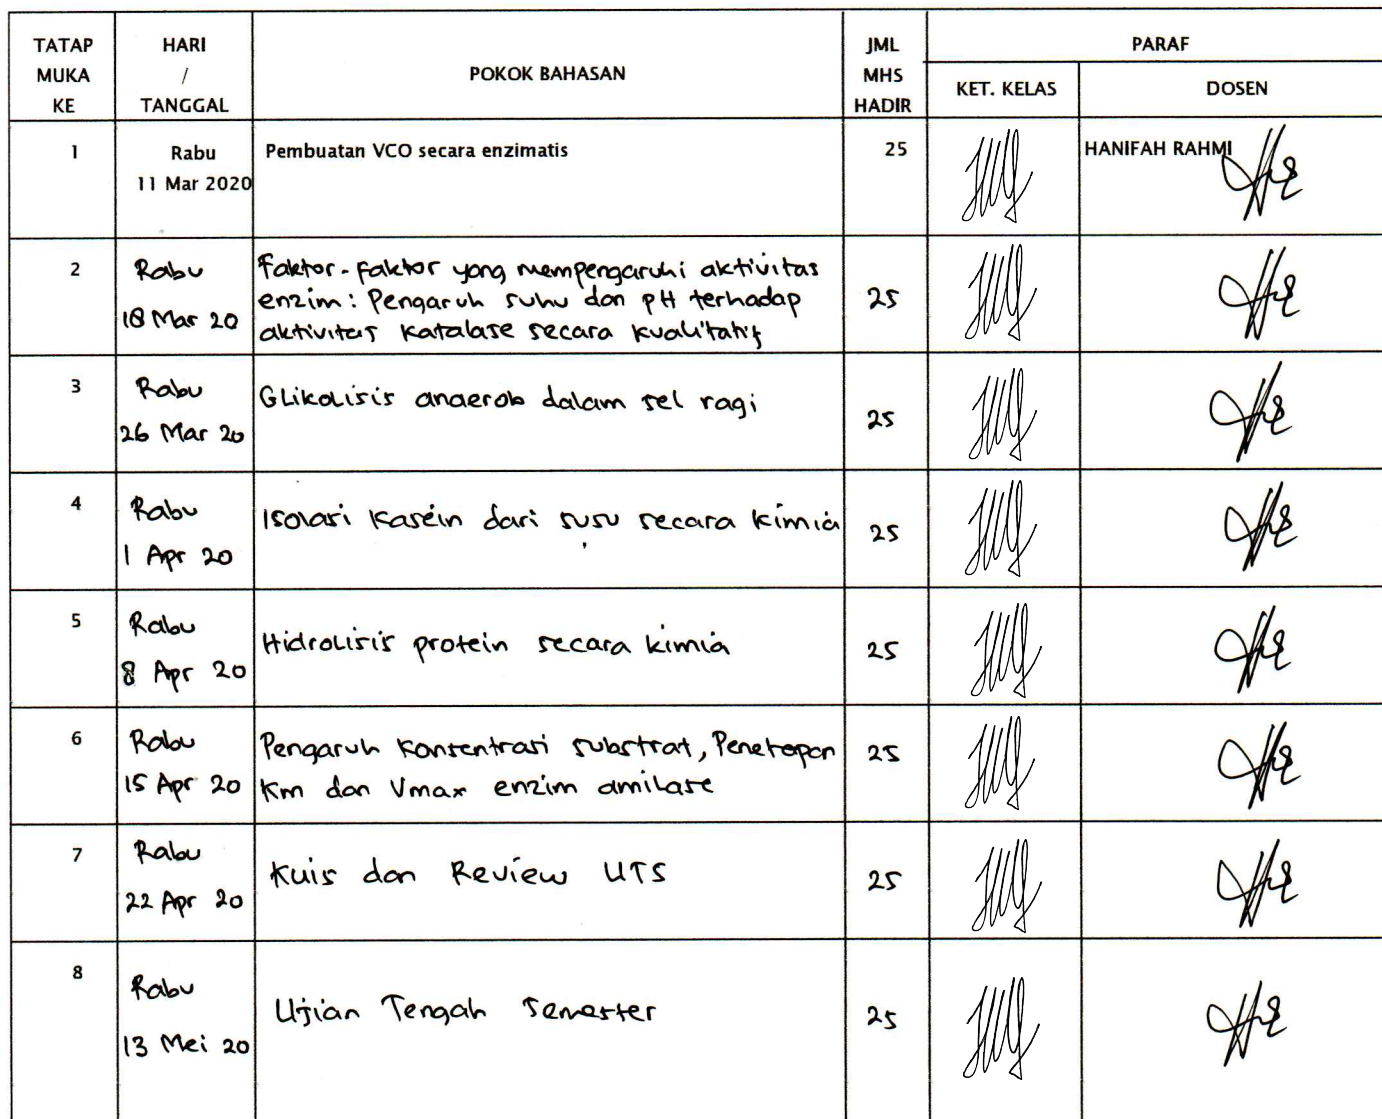 TATAP
MUKA
KE
HARI
/
TANGGAL
POKOK BAHASAN
JML
MHS
HADIR
PARAF
KET. KELAS
DOSEN
1
Rabu
11 Mar 2020
Pembuatan VCO secara enzimatis
25
HANIFAH RAHMI
2
Rabu
18 Mar 20
Faktor-faktor yang mempengaruhi aktivitas
enzim: Pengaruh suhu dan pH terhadap
aktivitas katalase secara kualitatif
25
3
Rabu
26 Mar 20
Glikolisis anaerob dalam sel ragi
25
4
Rabu
1 Apr 20
Isolasi kasein dari susu secara kimia
25
5
Rabu
8 Apr 20
Hidrolisis protein secara kimia
25
6
Rabu
15 Apr 20
Pengaruh konsentrasi substrat, Penetapan
Km dan Vmax enzim amilase
25
7
Rabu
22 Apr 20
Kuis dan Review UTS
25
8
Rabu
13 Mei 20
Ujian Tengah Semester
25